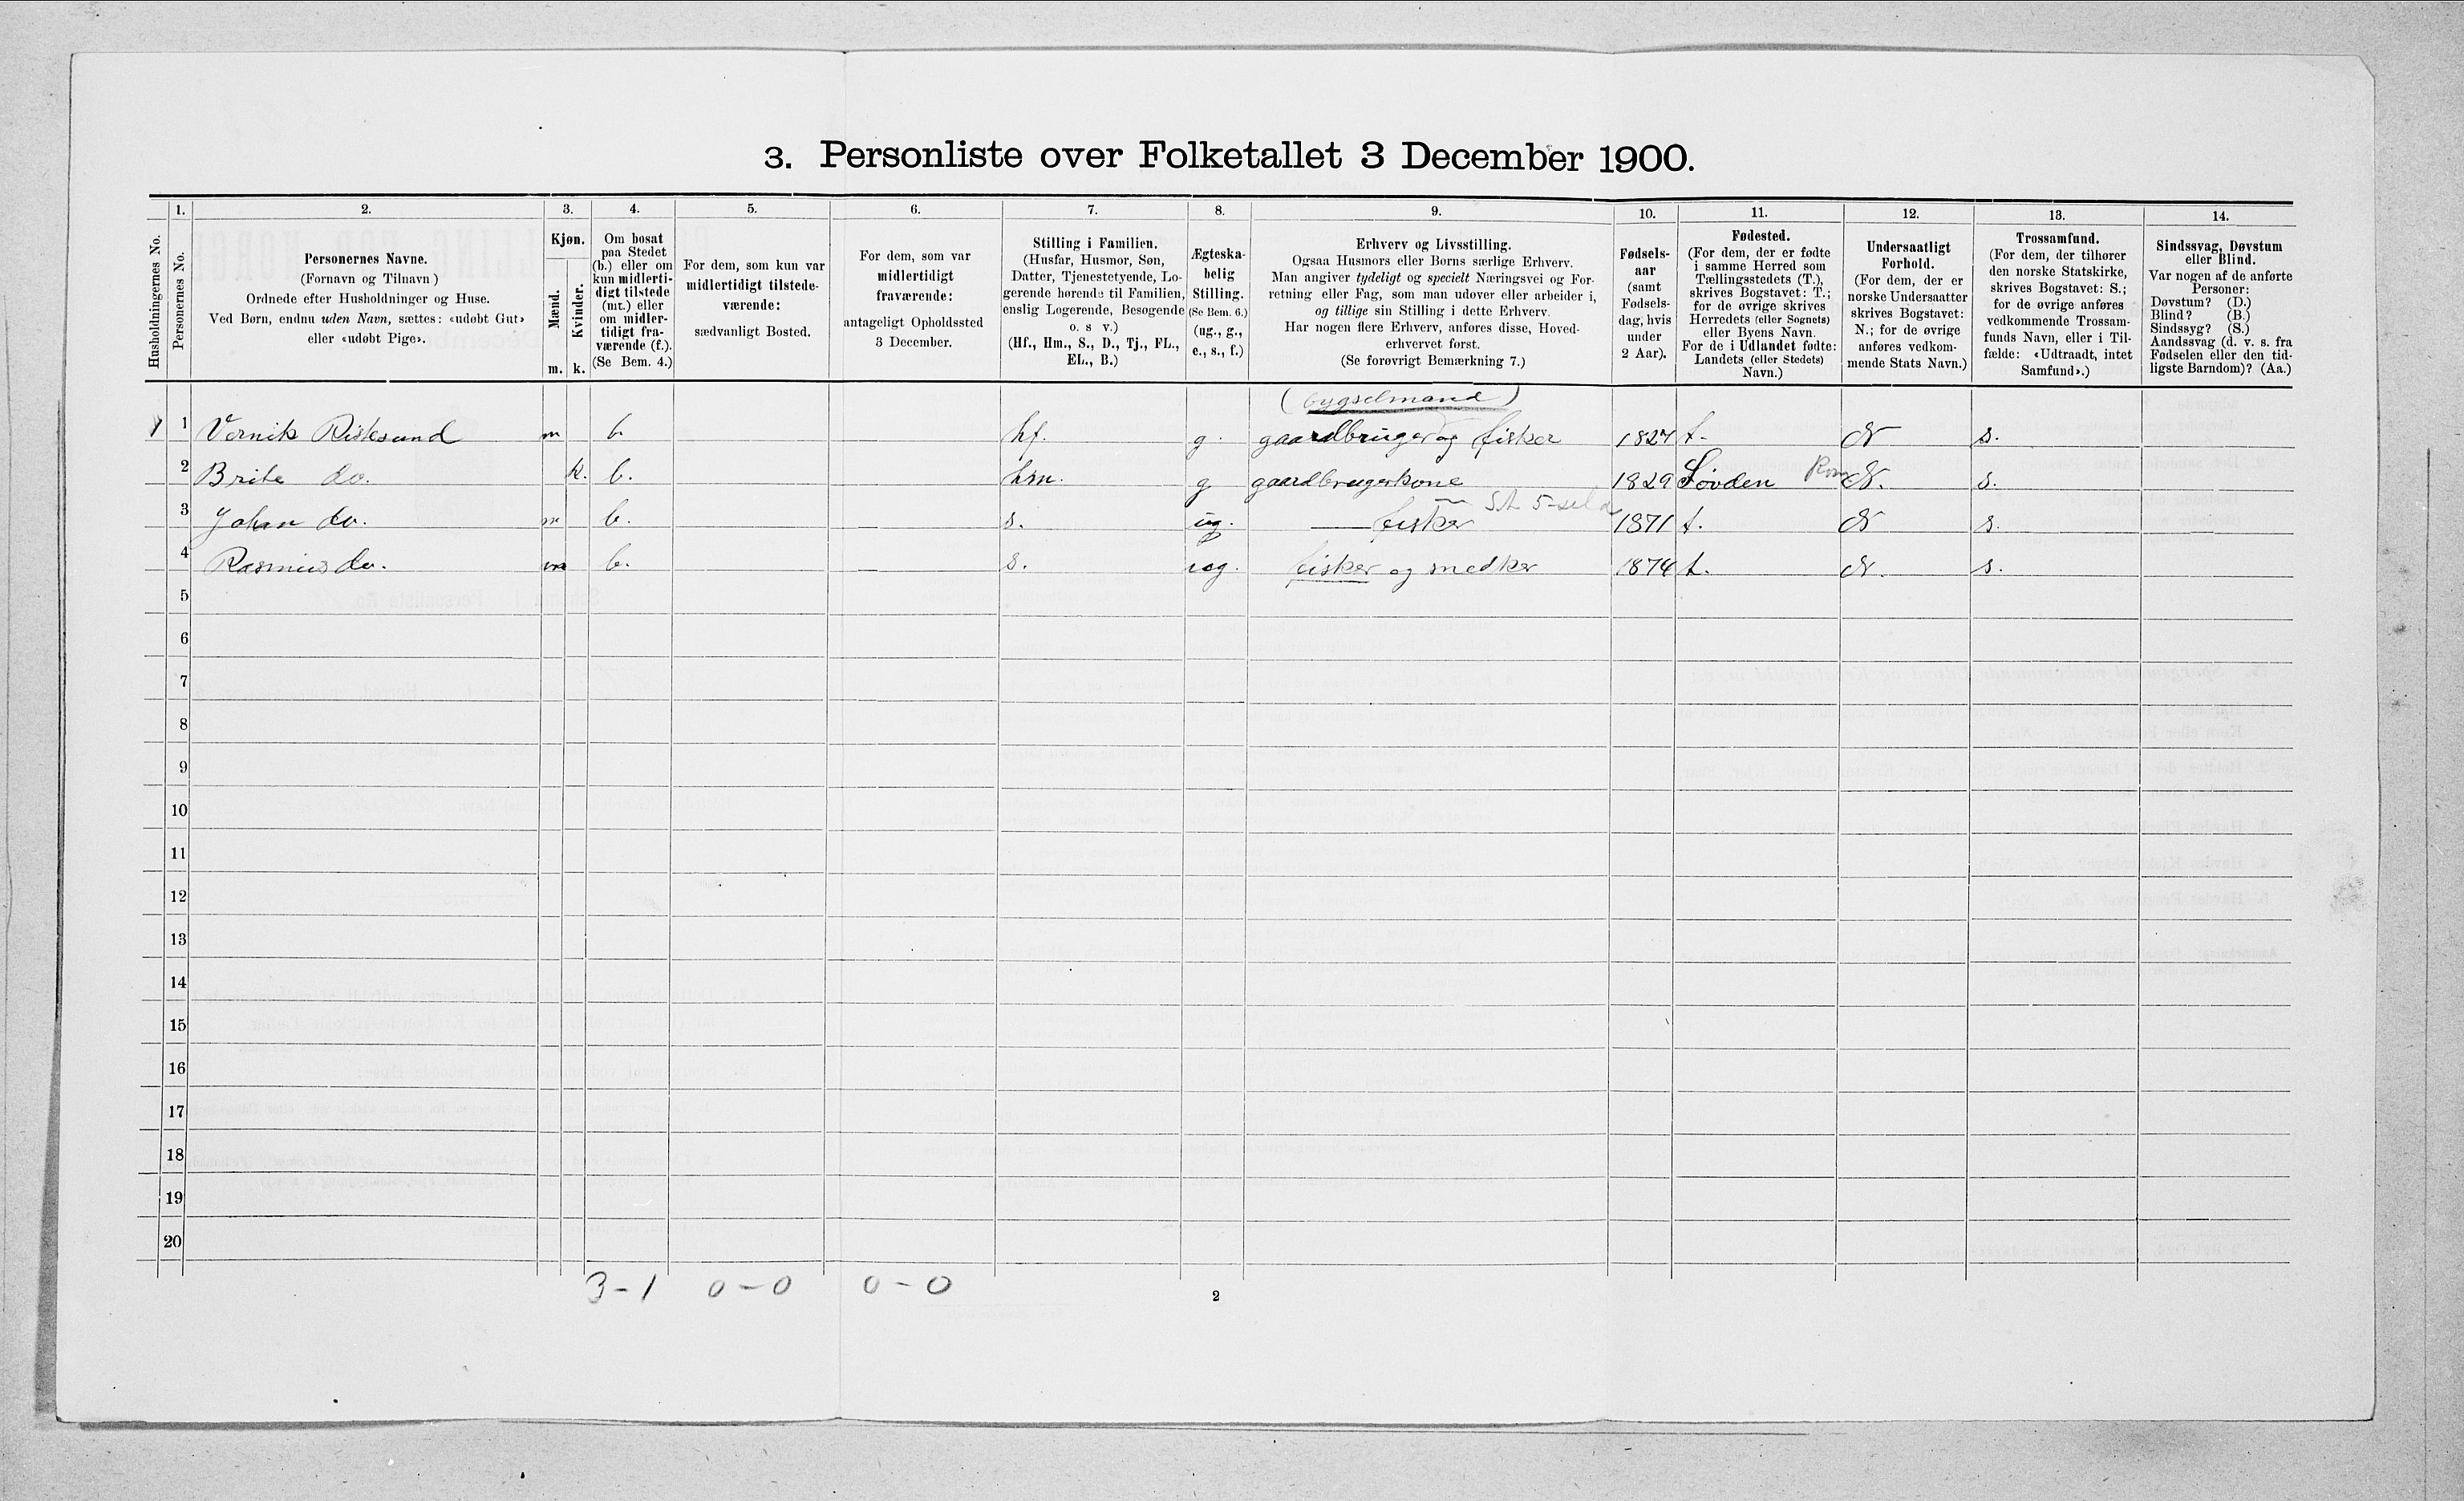 3. Personliste over Folketallet 3 December 1900.
1. 2. 3. 4. 5. 6. 7. 8. 9. 10. 11. 12. 13. 14.
Husholdningernes No.
Personernes No.
Personernes Navne.
(Fornavn og Tilnavn)
Ordnede efter Husholdninger og Huse.
Ved Børn, endnu uden Navn, sættes: «udøbt Gut»
eller «udøbt Pige».
Kjøn.
Mænd.
Kvinder.
m. k.
Om bosat
paa Stedet
(b.) eller om
kun midlerti-
digt tilstede
(mt.) eller
om midler-
tidigt fra-
værende (f.).
(Se Bem. 4.)
For dem, som kun var
midlertidigt tilstede-
værende:
sædvanligt Bosted.
For dem, som var
midlertidigt
fraværende:
antageligt Opholdssted
3 December.
Stilling i Familien.
(Husfar, Husmor, Søn,
Datter, Tjenestetyende, Lo-
gerende hørende til Familien,
enslig Logerende, Besøgende
o. s v.)
(Hf., Hm., S., D., Tj., FL.,
EL., B.)
Ægteska-
belig
Stilling.
(Se Bem. 6.)
(ug., g.,
e., s., f.)
Erhverv og Livsstilling.
Ogsaa Husmors eller Børns særlige Erhverv.
Man angiver tydeligt og specielt Næringsvei og For-
retning eller Fag, som man udøver eller arbeider i,
og tillige sin Stilling i dette Erhverv.
Har nogen flere Erhverv, anføres disse, Hoved-
erhvervet først.
(Se forøvrigt Bemærkning 7.)
Fødsels-
aar
(samt
Fødsels-
dag, hvis
under
2 Aar).
Fødested.
(For dem, der er fødte
i samme Herred som
Tællingsstedets (T.),
skrives Bogstavet: T.;
for de øvrige skrives
Herredets (eller Sognets)
eller Byens Navn.
For de i Udlandet fødte:
Landets (eller Stedets)
Navn.)
Undersaatligt
Forhold.
(For dem, der er
norske Undersaatter
skrives Bogstavet:
N.; for de øvrige
anføres vedkom-
mende Stats Navn.)
Trossamfund.
(For dem, der tilhører
den norske Statskirke,
skrives Bogstavet: S.;
for de øvrige anføres
vedkommende Trossam-
funds Navn, eller i Til-
fælde: «Udtraadt, intet
Samfund».)
Sindssvag, Døvstum
eller Blind.
Var nogen af de anførte
Personer:
Døvstum? (D.)
Blind? (B.)
Sindssyg? (S.)
Aandssvag (d. v. s. fra
Fødselen eller den tid-
ligste Barndom)? (Aa.)
(bygselmand)
1 1 Vernik Ristesund m b. hf. g. gaardbruger og fisker 1827 t. N s.
2 Brite do. k. b. hm. g gaardbrugerkone 1829 Søvden N. s.
3 Johan do. m b. s. ug. fisker 1871 t. N s.
4 Rasmus do. m b. s. ug. fisker og snedker 1874 t. N. s.
5
6
7
8
9
10
11
12
13
14
15
16
17
18
19
20
3-1 0-0 0-0
2